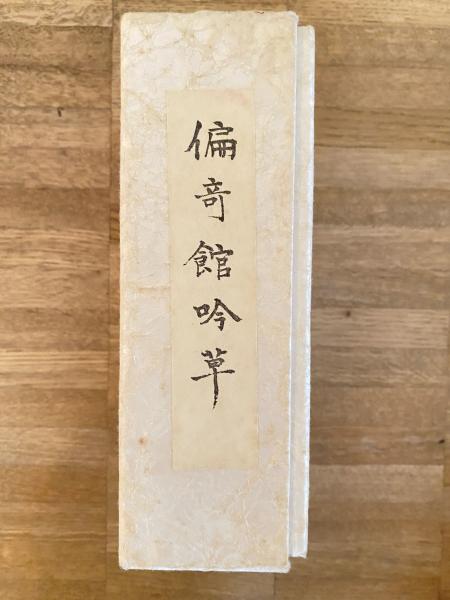 偏奇館吟草